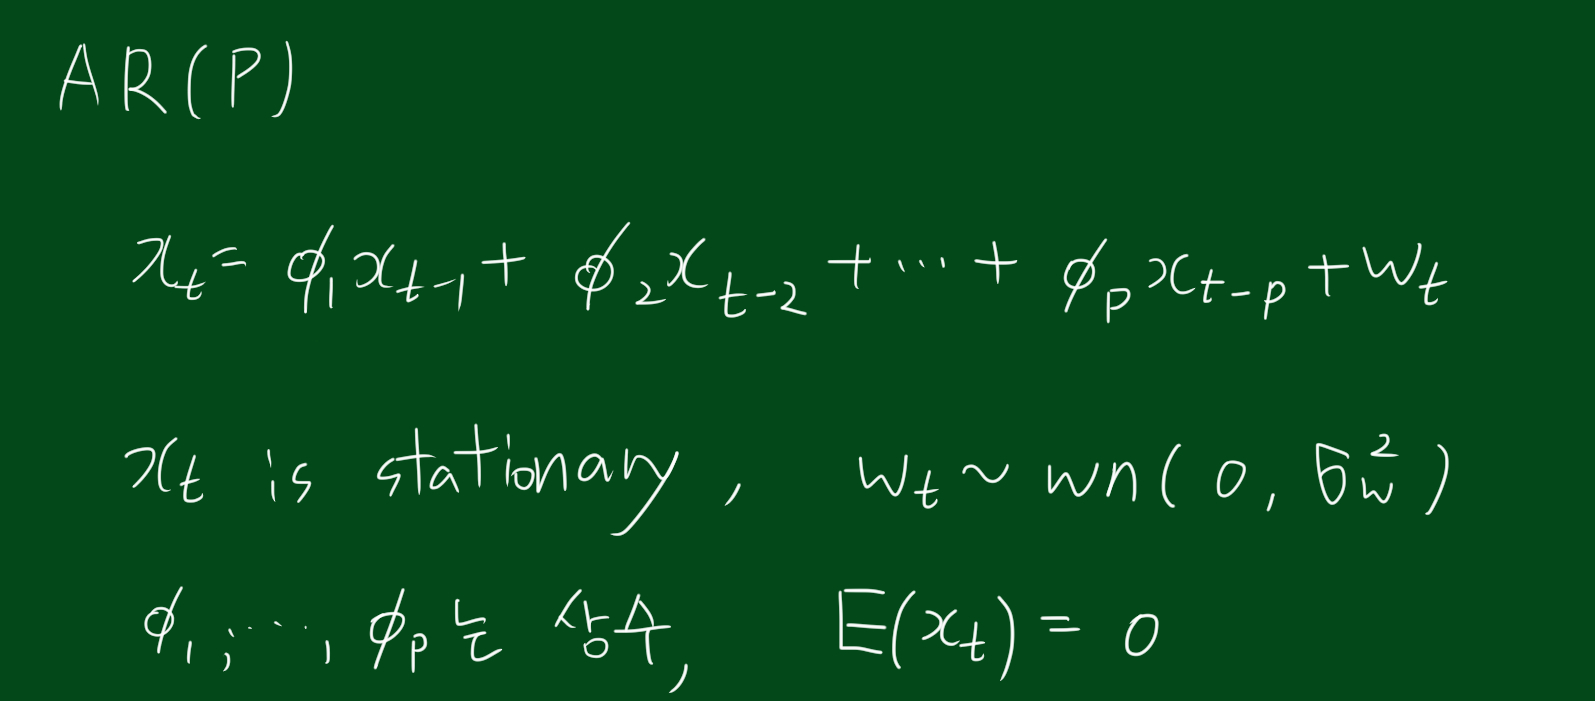 AR(P)
x_t = ϕ_1 x_{t-1} + ϕ_2 x_{t-2} + ⋯ + ϕ_p x_{t-p} + w_t
x_t is stationary, w_t ~ wn(0, σ_w^2)
ϕ_1, ⋯, ϕ_p는 상수, E(x_t) = 0